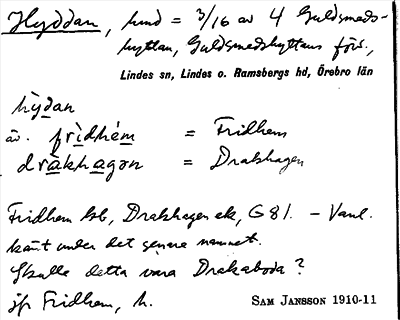 Hyddan, hmd = 3/16 av 4 Guldsmeds-
hyttan, Guldsmedshyttans förs.,
Lindes sn, Lindes o. Ramsbergs hd, Örebro län
hỳdan
äv. frìdhém = Fridhem
dràkhagən = Drakhagen
Fridhem Gsb, Drakhagen ek, G 81. – Vanl.
känt under det senare namnet.
Skulle detta vara Drakaboda?
jfr Fridhem, h.
SAM JANSSON 1910-11